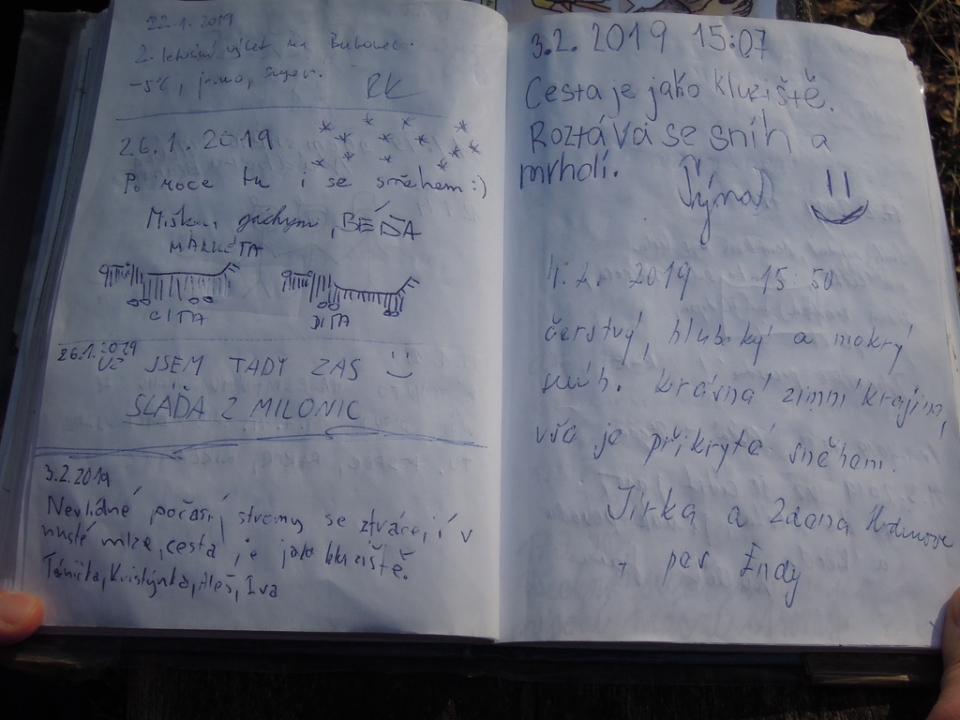 22.1.2019
2. letošní výlet na Bukovec.
-5°C, jasno, super.
RK
26.1.2019
Po roce tu i se sněhem :)
Miška, BÉĎA
MARKÉTA
CITA DITA
26.1.2019
UŽ JSEM TADY ZAS
SLÁĎA Z MILONIC
3.2.2019
Nevlidné počasí, stromy se ztrácejí v
husté mlze, cesta je jako kluziště.
Tánička, Kristýnka, Aleš, Iva
3.2. 2019 15:07
Cesta je jako kluziště.
Roztává se sníh a
mrholí.
4.2. 2019 15:50
čerstvý, hluboký a mokrý
sníh. Krásná zimní krajina,
vše je přikryté sněhem.
Jirka a Zdana
+ pes Endy